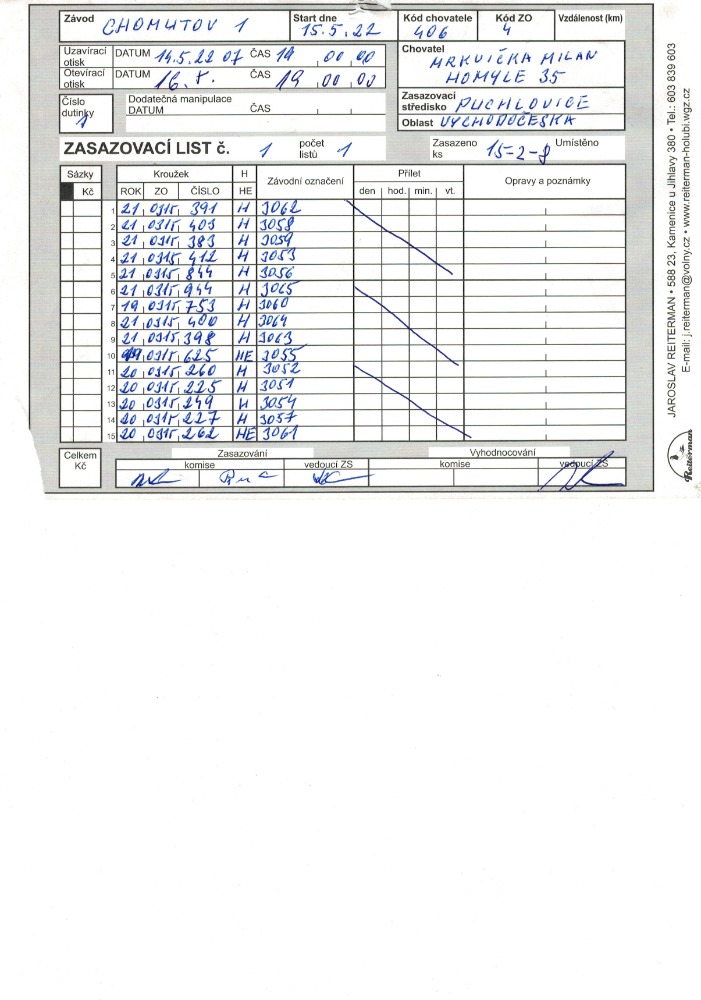 Závod CHOMUTOV 1 Start dne 15.5.22 Kód chovatele 406 Kód ZO 4 Vzdálenost (km)
Uzavírací otisk DATUM 14.5.22 07 ČAS 14 00 00
Otevírací otisk DATUM 16.5. ČAS 19 00 00
Chovatel MRKVIČKA MILAN
HOMYLE 35
Číslo dutinky 1 Dodatečná manipulace DATUM ČAS
Zasazovací středisko PUCHLOVICE
Oblast VÝCHODOČESKÁ
ZASAZOVACÍ LIST č. 1 počet listů 1 Zasazeno ks 15-2-8 Umístěno
Sázky Kroužek H Závodní označení Přílet Opravy a poznámky
Kč ROK ZO ČÍSLO HE den hod. min. vt.
1 21 0315 391 H 3062
2 21 0315 403 H 3058
3 21 0315 383 H 3059
4 21 0315 412 H 3053
5 21 0315 844 H 3056
6 21 0315 944 H 3065
7 19 0315 753 H 3060
8 21 0315 400 H 3064
9 21 0315 398 H 3063
10 19 0315 625 HE 3055
11 20 0315 260 H 3052
12 20 0315 225 H 3051
13 20 0315 249 H 3054
14 20 0315 227 H 3057
15 20 0315 262 HE 3061
Celkem Kč Zasazování Vyhodnocování
komise vedoucí ZS komise vedoucí ZS
JAROSLAV REITERMAN • 588 23, Kamenice u Jihlavy 380 • Tel.: 603 839 603
E-mail: j.reiterman@volny.cz • www.reiterman-holubi.wgz.cz
Reiterman